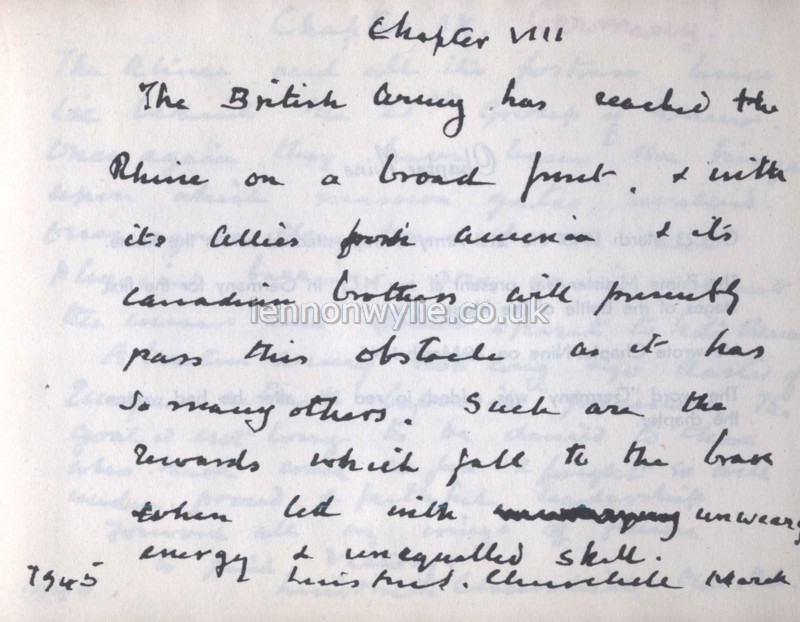 Chapter VIII
The British Army has reached the
Rhine on a broad front, & with
its Allies from America & its
Canadian brothers will presently
pass this obstacle as it has
so many others. Such are the
rewards which fall to the brave
when led with unweary
energy & unequalled skill.
1945 Winston S. Churchill March
lennonwylie.co.uk